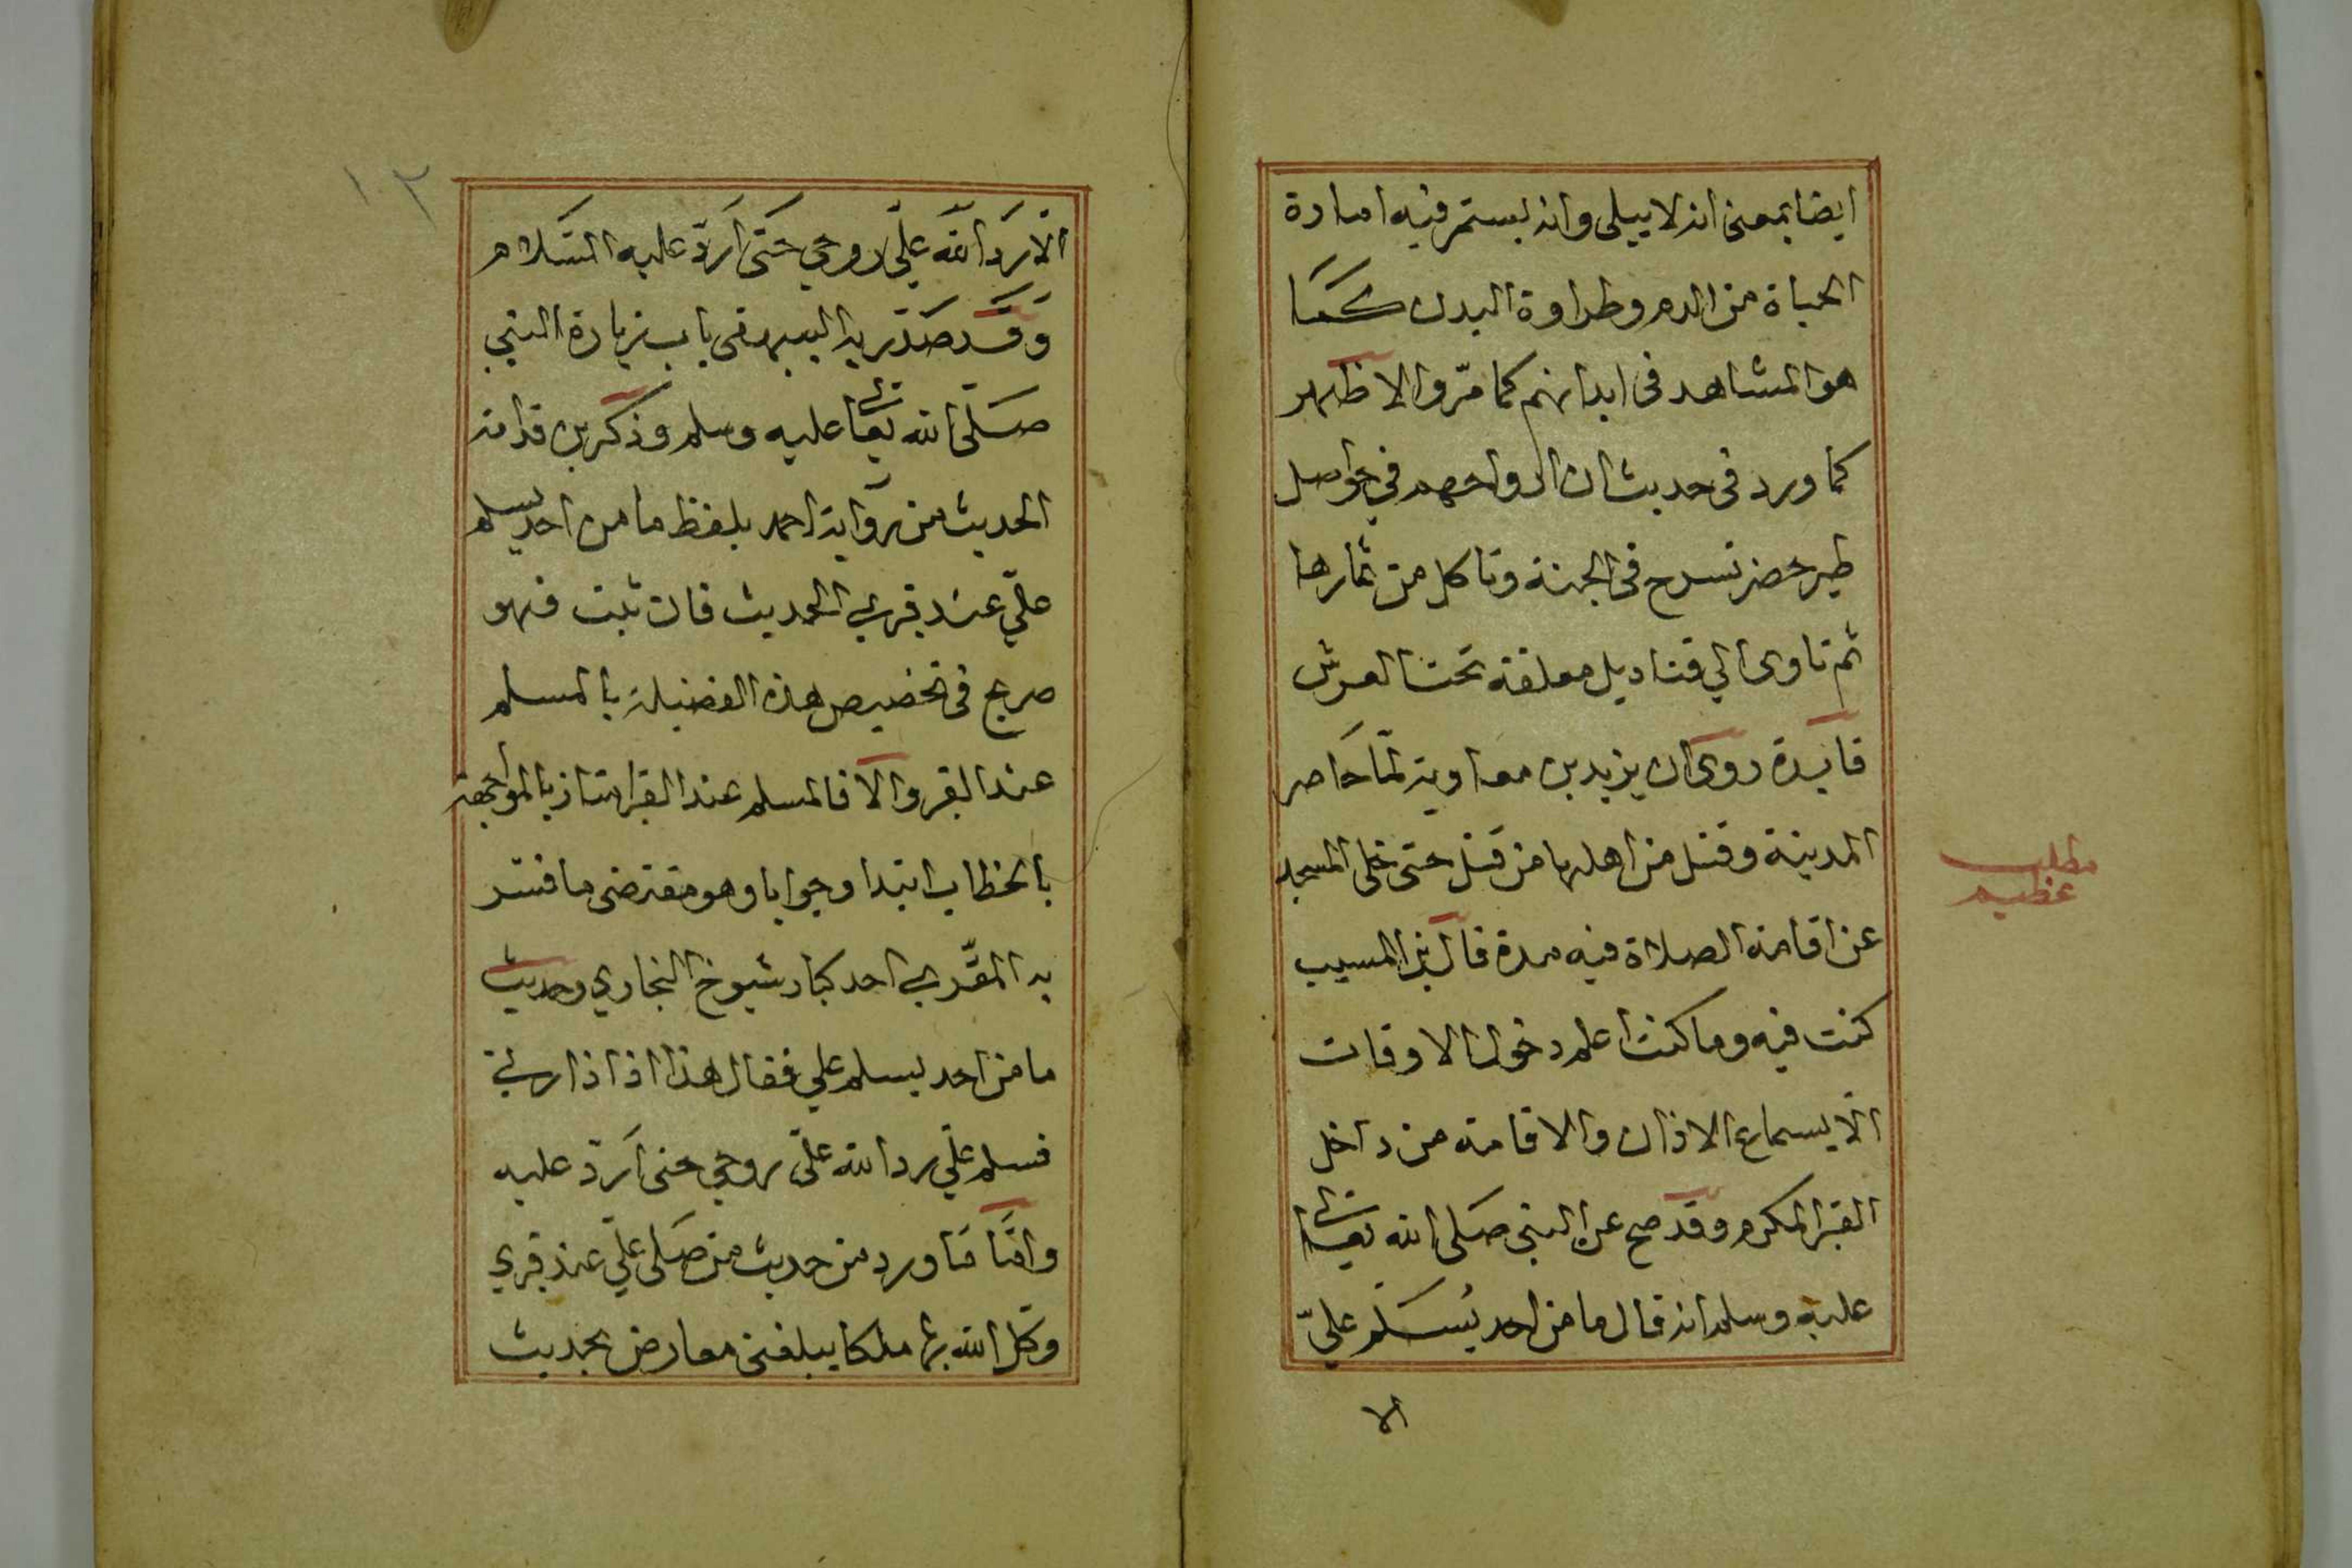 ايضا بمعنى انه لا يبلى وانه يستمر فيه امارة
الحياة من الدم وطراوة البدن كما
هو المشاهد في ابدانهم كما مرّ والاظهر
كما ورد في حديث ان ارواحهم في حواصل
طير خضر تسرح في الجنة وتاكل من ثمارها
ثم تاوى الي قناديل معلقة تحت العرش
فايدة روى ان يزيد بن معاوية لمّا حاصر
المدينة وقتل من اهلها من قتل حتى خلى المسجد
عن اقامة الصلاة فيه مدة قال ابن المسيب
كنت فيه وما كنت اعلم دخول الاوقات
الّا بسماع الاذان والاقامة من داخل
القبر المكرم وقد صح عن النبي صلى الله تعالى
عليه وسلم انه قال ما من احد يُسَلّم عليّ
الا
مطلب
عظيم
١٠٢
الّا رَدّ الله عليّ روحي حَتَّى اَرَدّ عليه السَّلام
وَقَد صَدّر به البيهقى باب زيارة النبي
صَلّى الله تعالى عليه وسلم وذكر بن قدامة
الحديث من رواية احمد بلفظ ما من احد يسلم
عليّ عند قبري الحديث فان ثبت فهو
صريح في تخصيص هذه الفضيلة بالمسلم
عند القبر والا فالمسلم عند القبر امتاز بالمواجهة
بالخطاب ابتدا وجوابا وهو مقتضى ما فسّر
به المقري احد كبار شيوخ البخاري وحديث
ما من احد يسلم علي فقال هذا اذا زارني
فسلم عليّ رد الله عليّ روحي حتى اَرَدّ عليه
وامّا مَا ورد من حديث من صَلى عليّ عند قبري
وكل الله بها ملكا يبلغني معارض بحديث